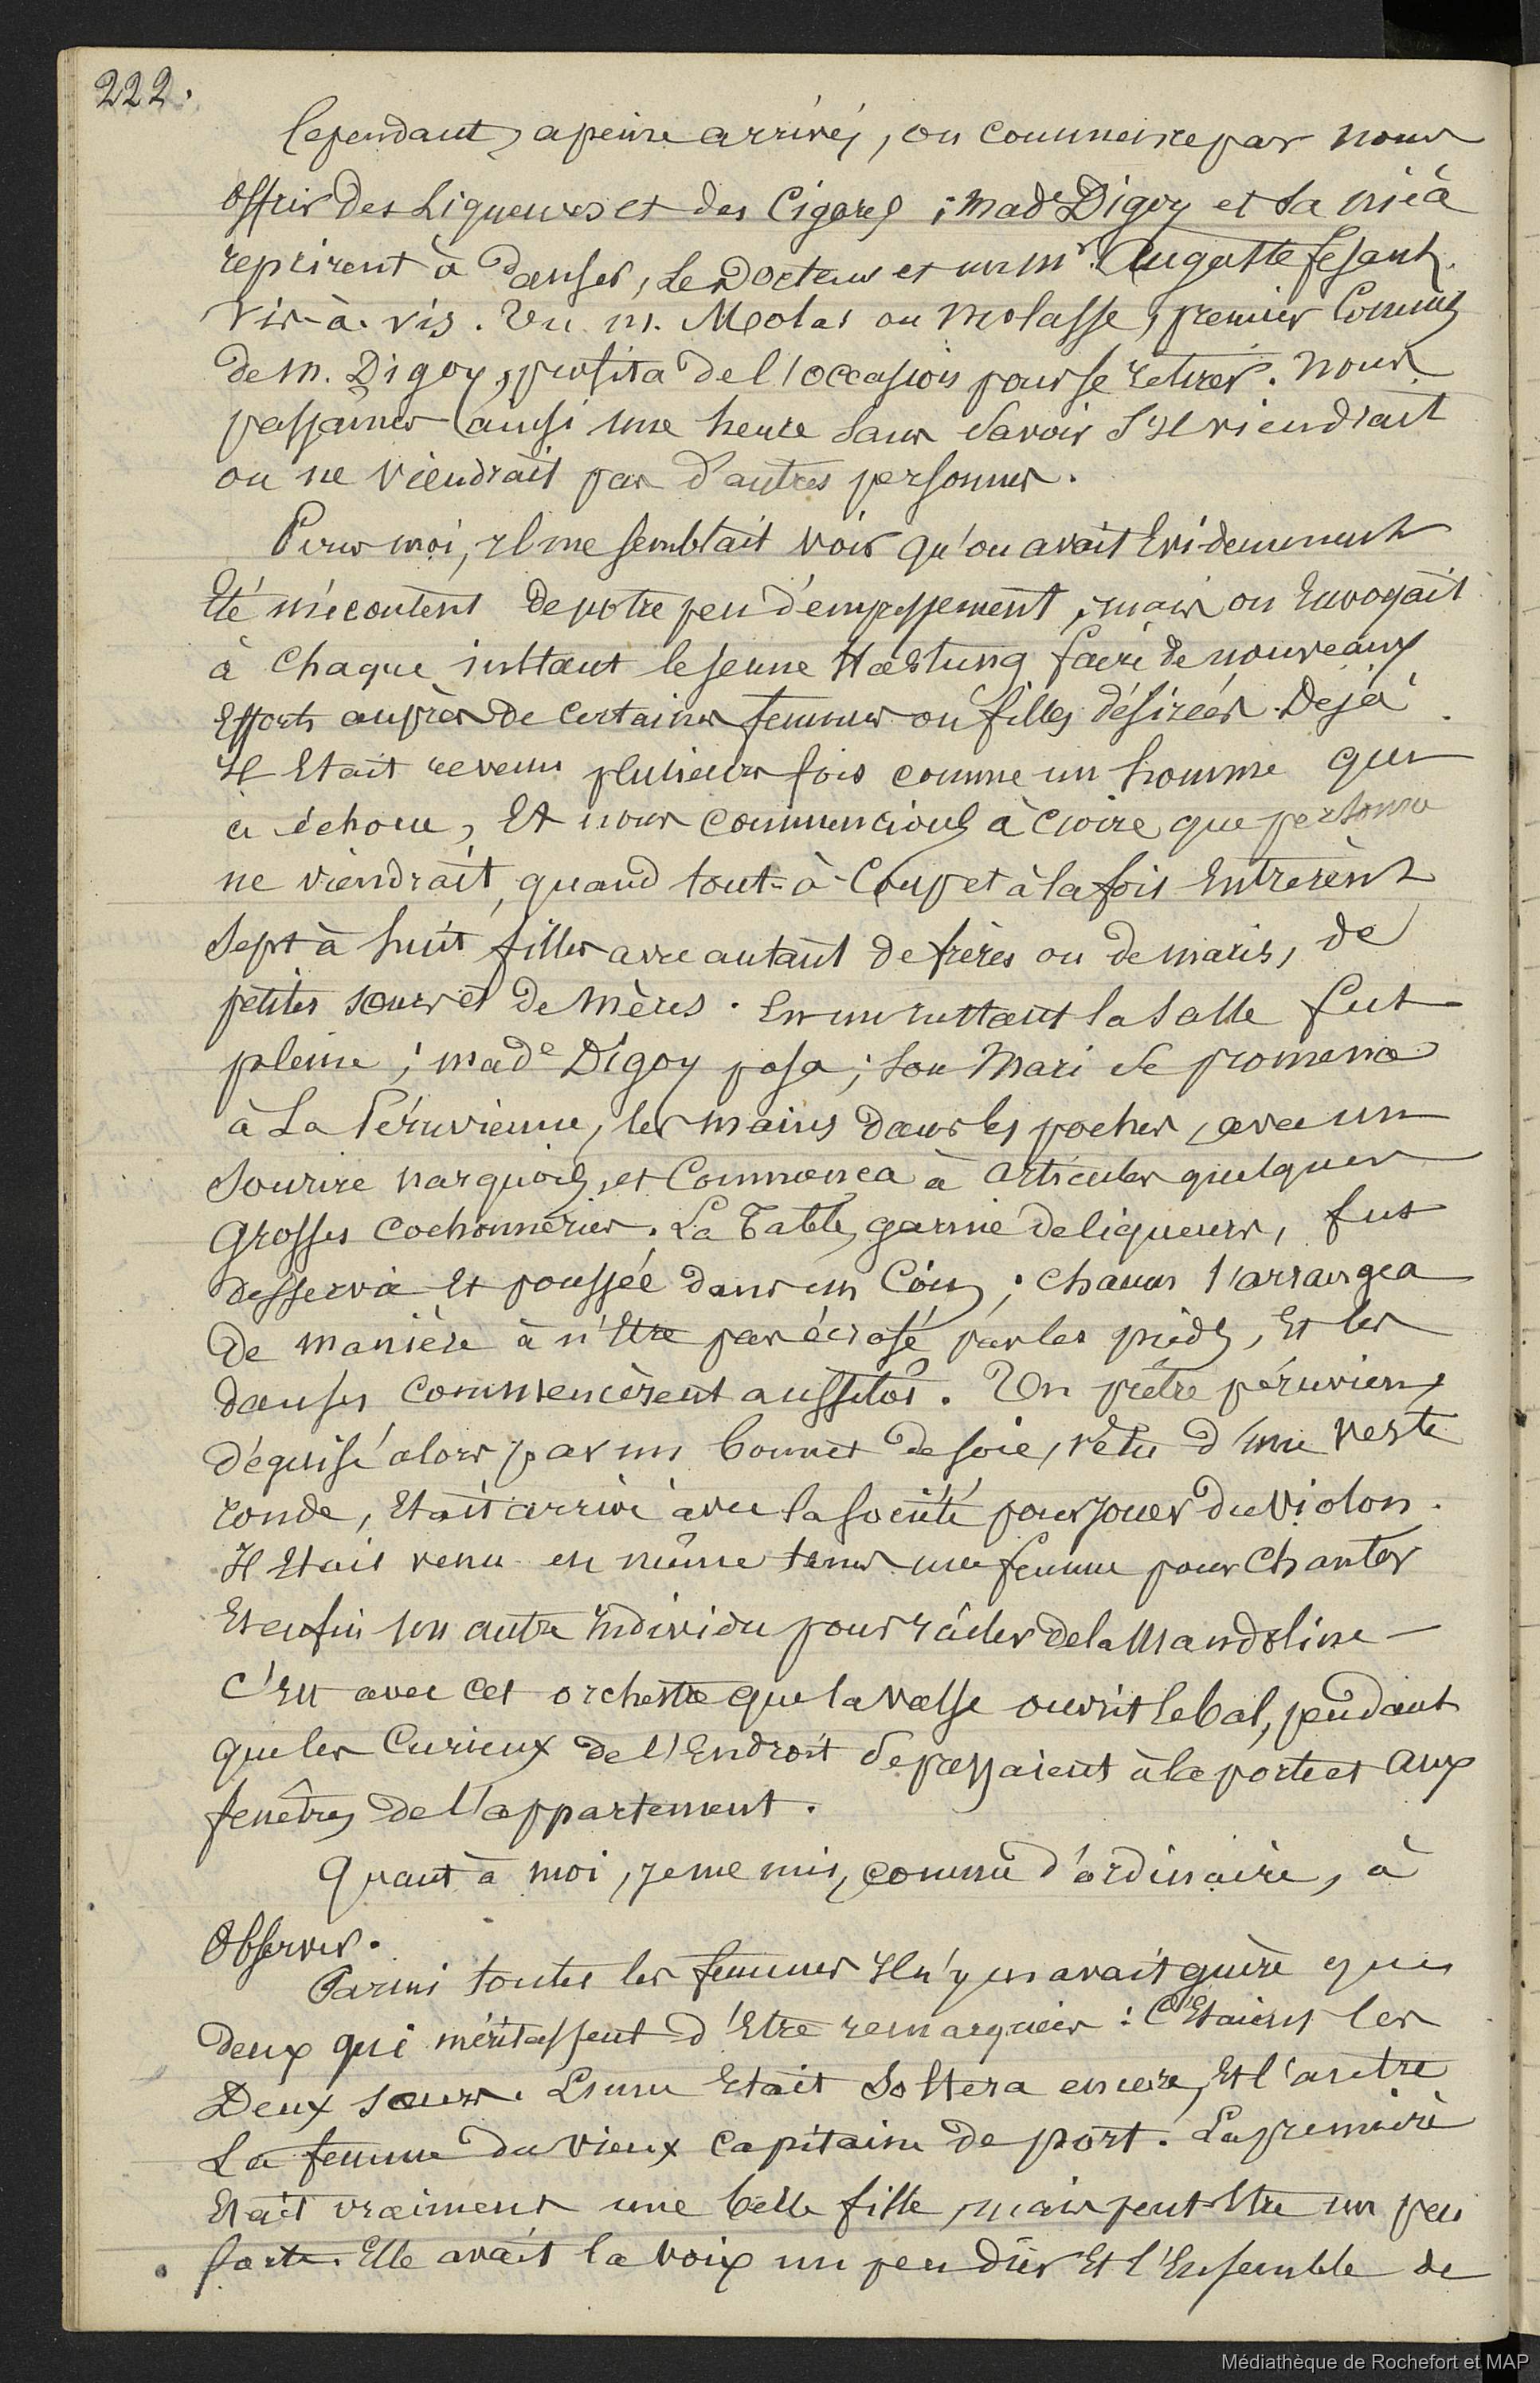 222.
Cependant, apeine arrivés, on commence par nous
offrir des Liqueurs et des Cigares ; Made Digoy et sa niéà
reprirent à danser, Le Docteur et un mr. Auguste fesant
vis-à-vis. Un m. Molas ou Molasse, premier Commis
de m. Digoy, profita de l'occasion pour se retirer. Nous
passâmes ainsi une heure sans savoir s'il viendrait
ou ne viendrait pas d'autres personnes.
Pour moi, il me semblait voir qu'on avait Evidemment
Eté mécontent de notre peu d'empressement, mais on Envoyait
à chaque instant le jeune Hartung faire de nouveaux
Efforts auprès de certaines femmes ou filles désirées. Dejà
Il Etait revenu plusieurs fois comme un homme qui
a échoué, Et nous commencions à croire que personne
ne viendrait, quand tout-à-Coup et à la fois Entrerent
Sept à huit filles avec autant de frères ou de maris, de
petites sœurs et de mères. En un instant la salle fut
pleine ; made Digoy posa ; son Mari se promena
à La Péruvienne, les mains dans les poches, avec un
Sourire narquois, et Commenca à articuler quelques
grosses cochonneries. La Table, garnie de liqueurs, fut
desservie Et poussée dans un Coin ; chacun s'arrangea
de manière à n'Etre pas écrasé par les pieds, Et les
danses commencèrent aussitôt. Un prêtre péruvien,
déguisé alors par un bonnet de soie, vêtu d'une veste
ronde, Etait arrivé avec la société pour jouer du Violon.
Il Etait venu en même tems une femme pour Chanter
Et enfin un autre Individu pour râcler de la Mandoline —
C'est avec cet orchestre que la valse ouvrit le bal, pendant
que les Curieux de l'Endroit se pressaient à la porte et aux
fenêtres de l'appartement.
Quant à moi, je me mis, comme d'ordinaire, à
Observer.
Parmi toutes les femmes Il n'y en avait guère que
deux qui méritassent d'Etre remarquées : C'Etaient les
Deux sœurs. L'une Etait Soltera encore, Et l'autre
La femme du vieux Capitaine de port. La première
Etait vraiment une belle fille, mais peut Etre un peu
forte. Elle avait la voix un peu dure Et l'Ensemble de
Médiathèque de Rochefort et MAP